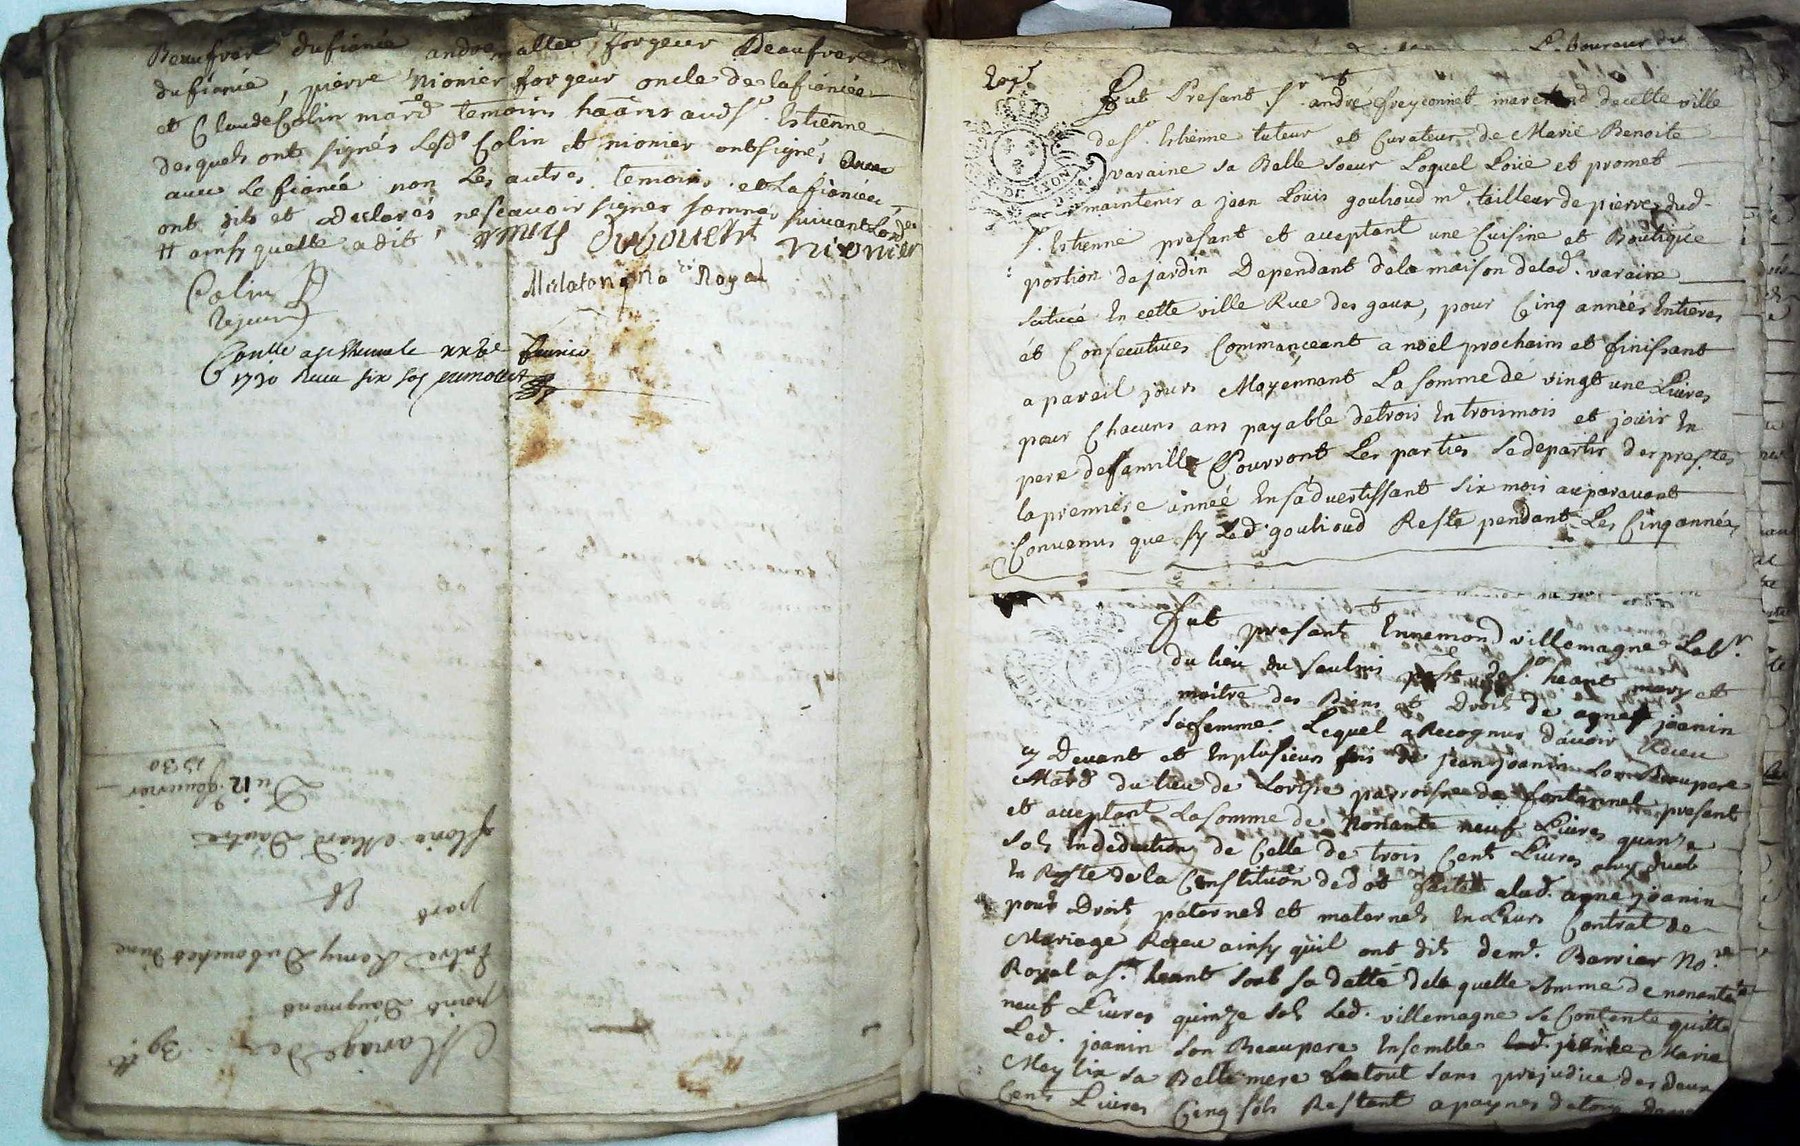 Beaufrere dufiancé andre vallee, forgeur Beaufrere
dufiancé, pierre Nionier forgeur oncle de lafiancée
et Claude Colin mard temoins haâns audt St. Estienne
desquels ont signés Lesd. Colin et nionier ont signé,
avec Le fiancé non Les autres temoins et Lafiancée
ont dits et declarés nescavoir signer somnés suivant Lord.
ainsy quelle a dit
remy Dubouchet nionier
Colin
Royal
Conlle a St Estienne le xxve
1730 Receu six sols
Mariage de 39 ll
point Daugment
Entre Remy Dubouchet Dune
part
Et
Mard Dautre
Du 12 Janvier
1730
Laboureur du
Fut Presant Sr. andré freyconnet marchand decette ville
de St. Estienne tuteur et Curateur de Marie Benoite
varaine sa Belle Soeur Loquel Loüe et promet
maintenir a jean Louis goulioud me. tailleur de pierre dud.
St. Estienne presant et acceptant une Cuisine et Boutique
portion de jardin Dependant dela maison delad. varaine
Scituée En cette ville Rue des gaux, pour Cinq années Entieres
et Consecutives Commanceant a noël prochain et finissant
a pareil jours Moyennant La somme de vingt une Livres
pour Chacuns ans payable detrois Entroismois et joüir En
pere defamille Pourront Les parties sedepartir des prestes
la premiere année En s'advertissant six mois auparavant
Convenus que sy Led. goulioud Reste pendant Les Cinq années
Fut presant Ennemond villemagne Labr.
du lieu du Saulnis psse de St. heant mary et
maitre des Biens et Droits de agne joanin
sa femme Lequel a Recognus davoir Receu
cy Devant et Enplusieurs fois de jean joanin son Beaupere
Mard du lieu de Lorme parroisse de fontannes presant
et acceptant La somme de Nonante neuf Livres quinze
sols En deduction de Celle de trois Cents Livres
En Reste de la Constitution de dot faitte a lad. agne joanin
pour Droits paternels et maternels En Leurs Contrat de
Mariage Receu ainsy quil ont dit de me. Barrier Nore.
Royal a St. heant soub sa datte dela quelle somme de nonante
neuf Livres quinze sols Led. villemagne se Contente quitte
Led. joanin son Beaupere Ensemble Marie
sa Belle mere Le tout sans prejudice des deux
Cents Livres Cinq sols Restant a payer